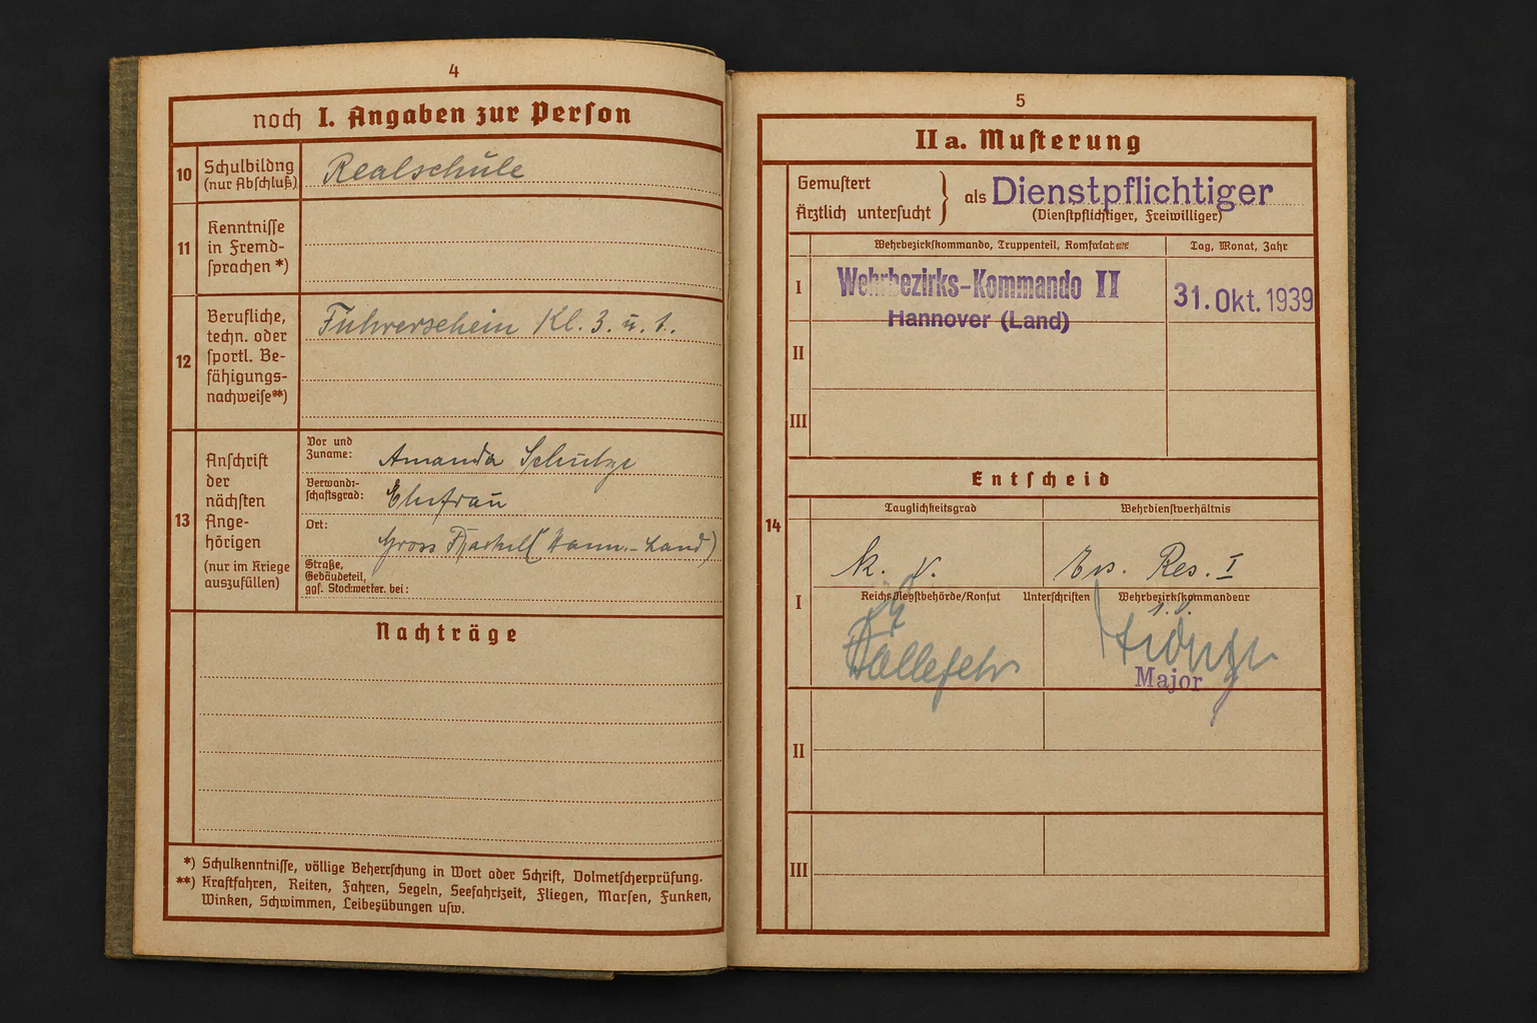 4
noch I. Angaben zur Perſon
10
Schulbildng
(nur Abſchluß)
Realschule
11
Kenntniſſe
in Fremd-
ſprachen *)
12
Berufliche,
techn. oder
ſportl. Be-
fähigungs-
nachweiſe**)
Führerschein Kl. 3. u. 1.
13
Anſchrift
der
nächſten
Ange-
hörigen
(nur im Kriege
auszufüllen)
Vor und
Zuname:
Amanda Schulze
Verwandt-
ſchaftsgrad:
Ehefrau
Ort:
Gross (Hann.-Land)
Straße,
Gebäudeteil,
ggf. bei:
Nachträge
*) Schulkenntniſſe, völlige Beherrſchung in Wort oder Schrift, Dolmetſcherprüfung.
**) Kraftfahren, Reiten, Fahren, Segeln, Seefahrtzeit, Fliegen, Marſen, Funken,
Winken, Schwimmen, Leibesübungen uſw.
5
II a. Muſterung
Gemuſtert
Ärztlich unterſucht
als Dienstpflichtiger
(Dienſtpflichtiger, Freiwilliger)
Wehrbezirkſkommando, Truppenteil,
Tag, Monat, Jahr
I
Wehrbezirks-Kommando II
Hannover (Land)
31. Okt. 1939
II
III
Entſcheid
14
Tauglichkeitsgrad
Wehrdienſtverhältnis
I
k. v.
Ers. Res. I
Unterſchriften
Wehrbezirkſkommandeur
Major
II
III